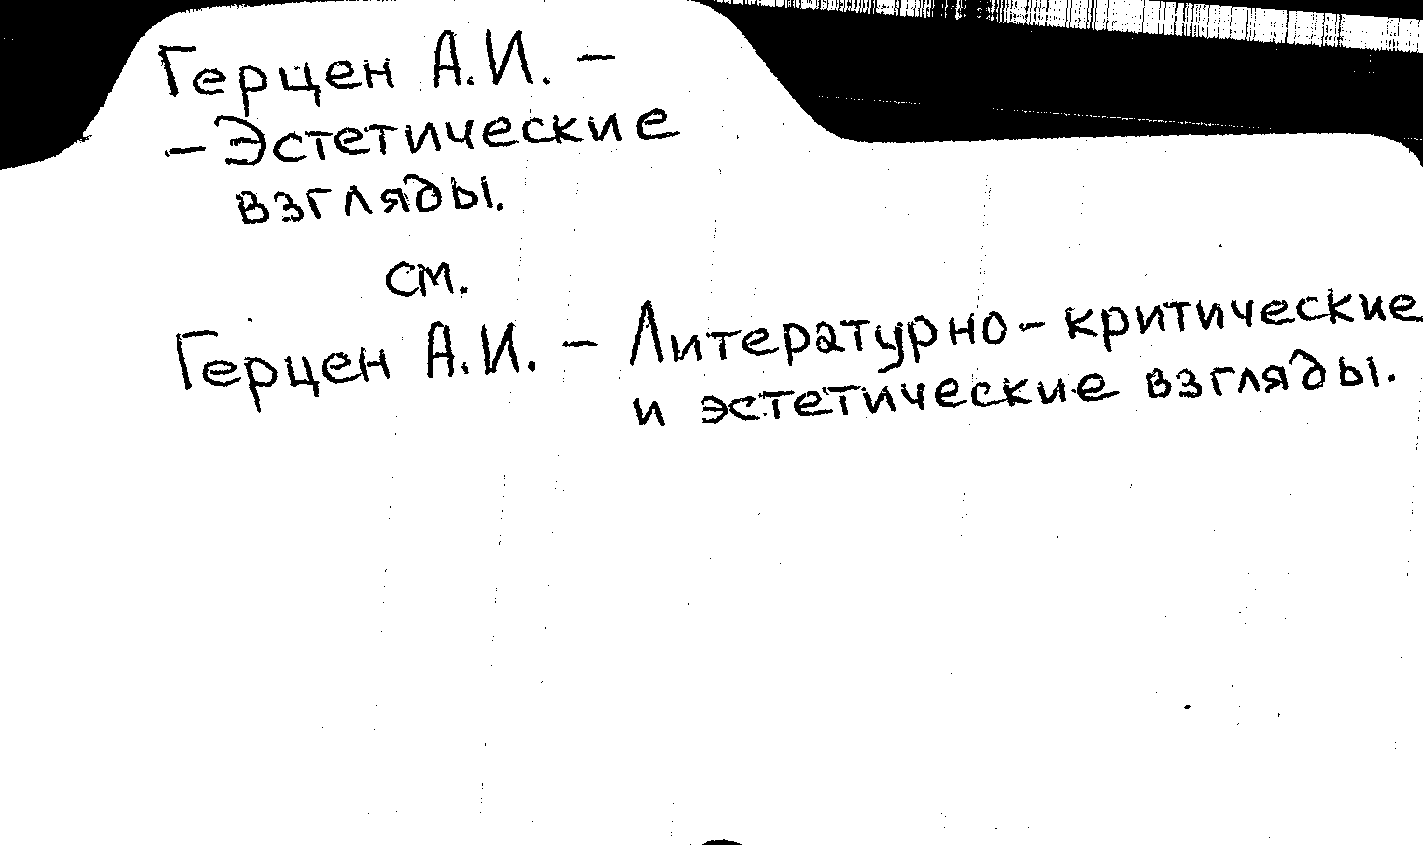 Герцен А.И. –
– Эстетические
взгляды.
см.
Герцен А.И. – Литературно-критические
и эстетические взгляды.